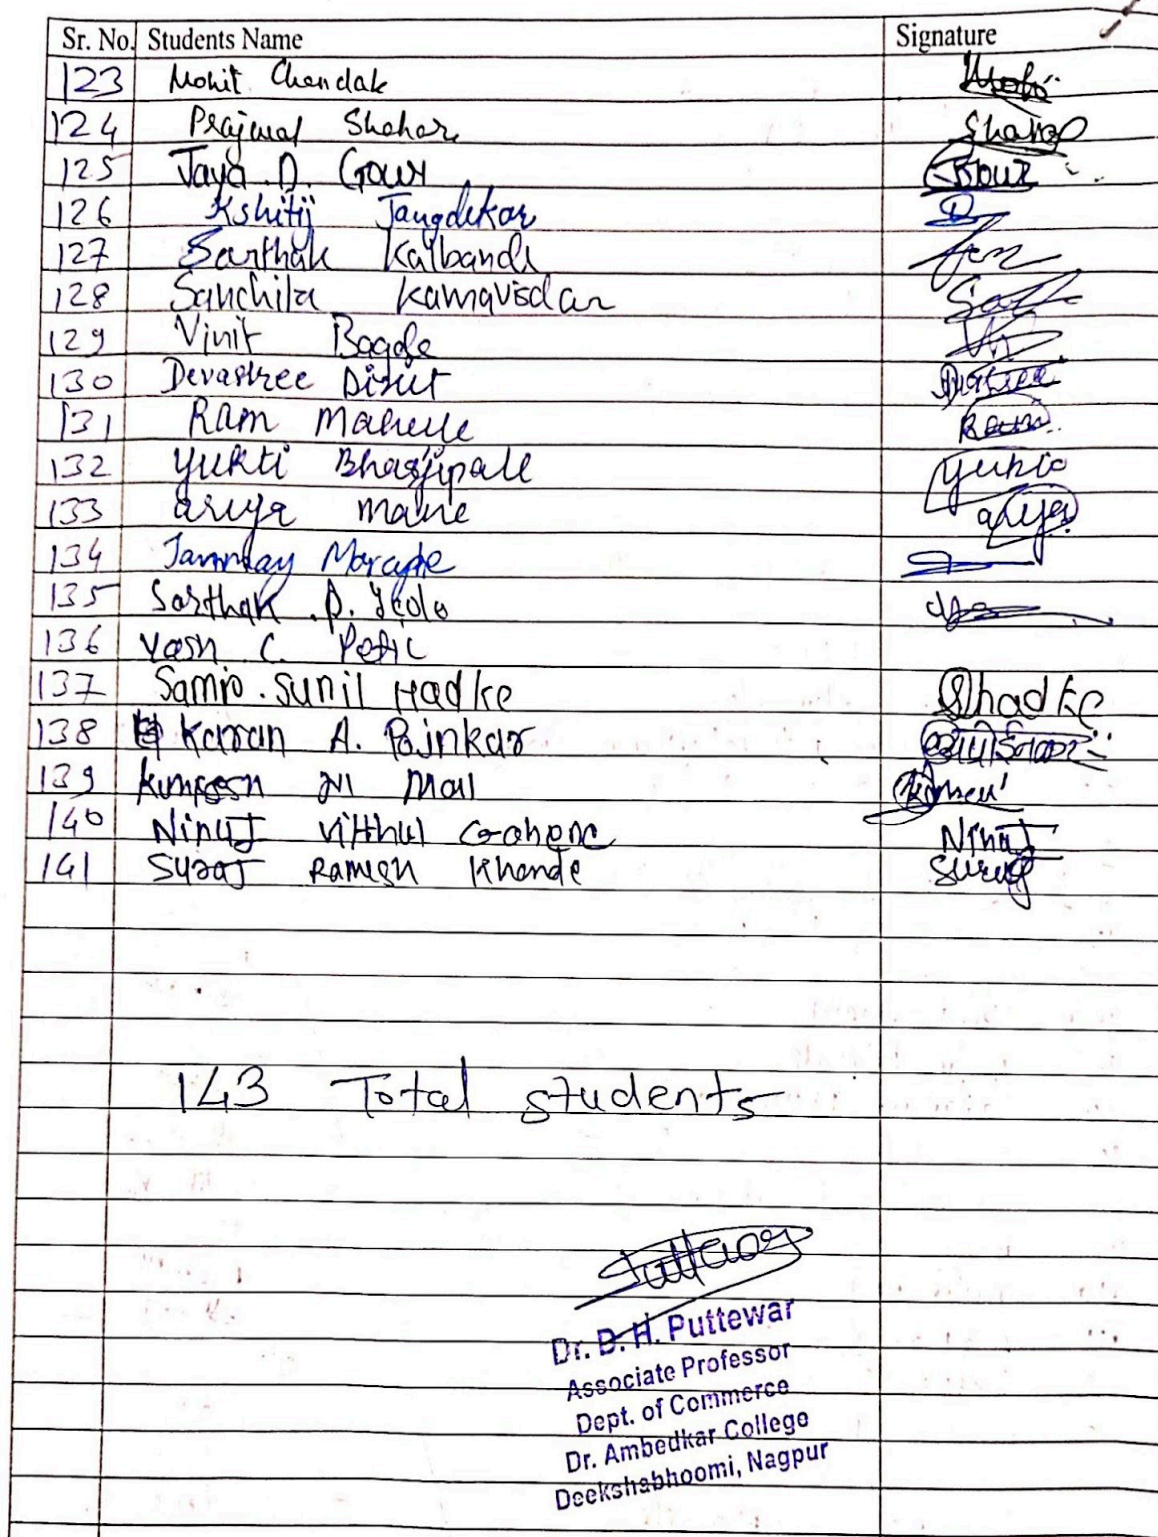 Sr. No. Students Name Signature
123 Mohit Chandak
124 Prajwal Shahar
125 Jaya D. Gour Gour
126 Kshitij Jangdekar
127 Sarthak Kalbande
128 Sanchita Kamavisdar
129 Vinit Bagde
130 Devashree Dixit
131 Ram Mahule Ram
132 Yukti Bhagipale Yukti
133 ariya mane ariya
134 Tanmay Morande
135 Sarthak P.
136 Yash C.
137 Samip. Sunil Hadke Shadke
138 Karan A. Painkar
139 M
140 Niraj Vitthal Niraj
141 Suraj Ramesh Khande Suraj
143 Total students
Dr. D. H. Puttewar
Associate Professor
Dept. of Commerce
Dr. Ambedkar College
Deekshabhoomi, Nagpur